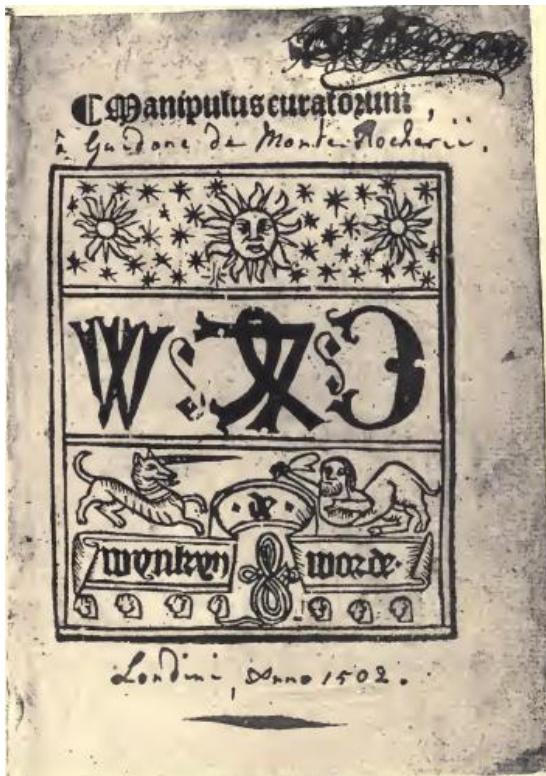 ¶ Manipulus curatorum,
à Guidone de Monte Rocherii.
W C
de
wynkyn worde.
Londini, Anno 1502.